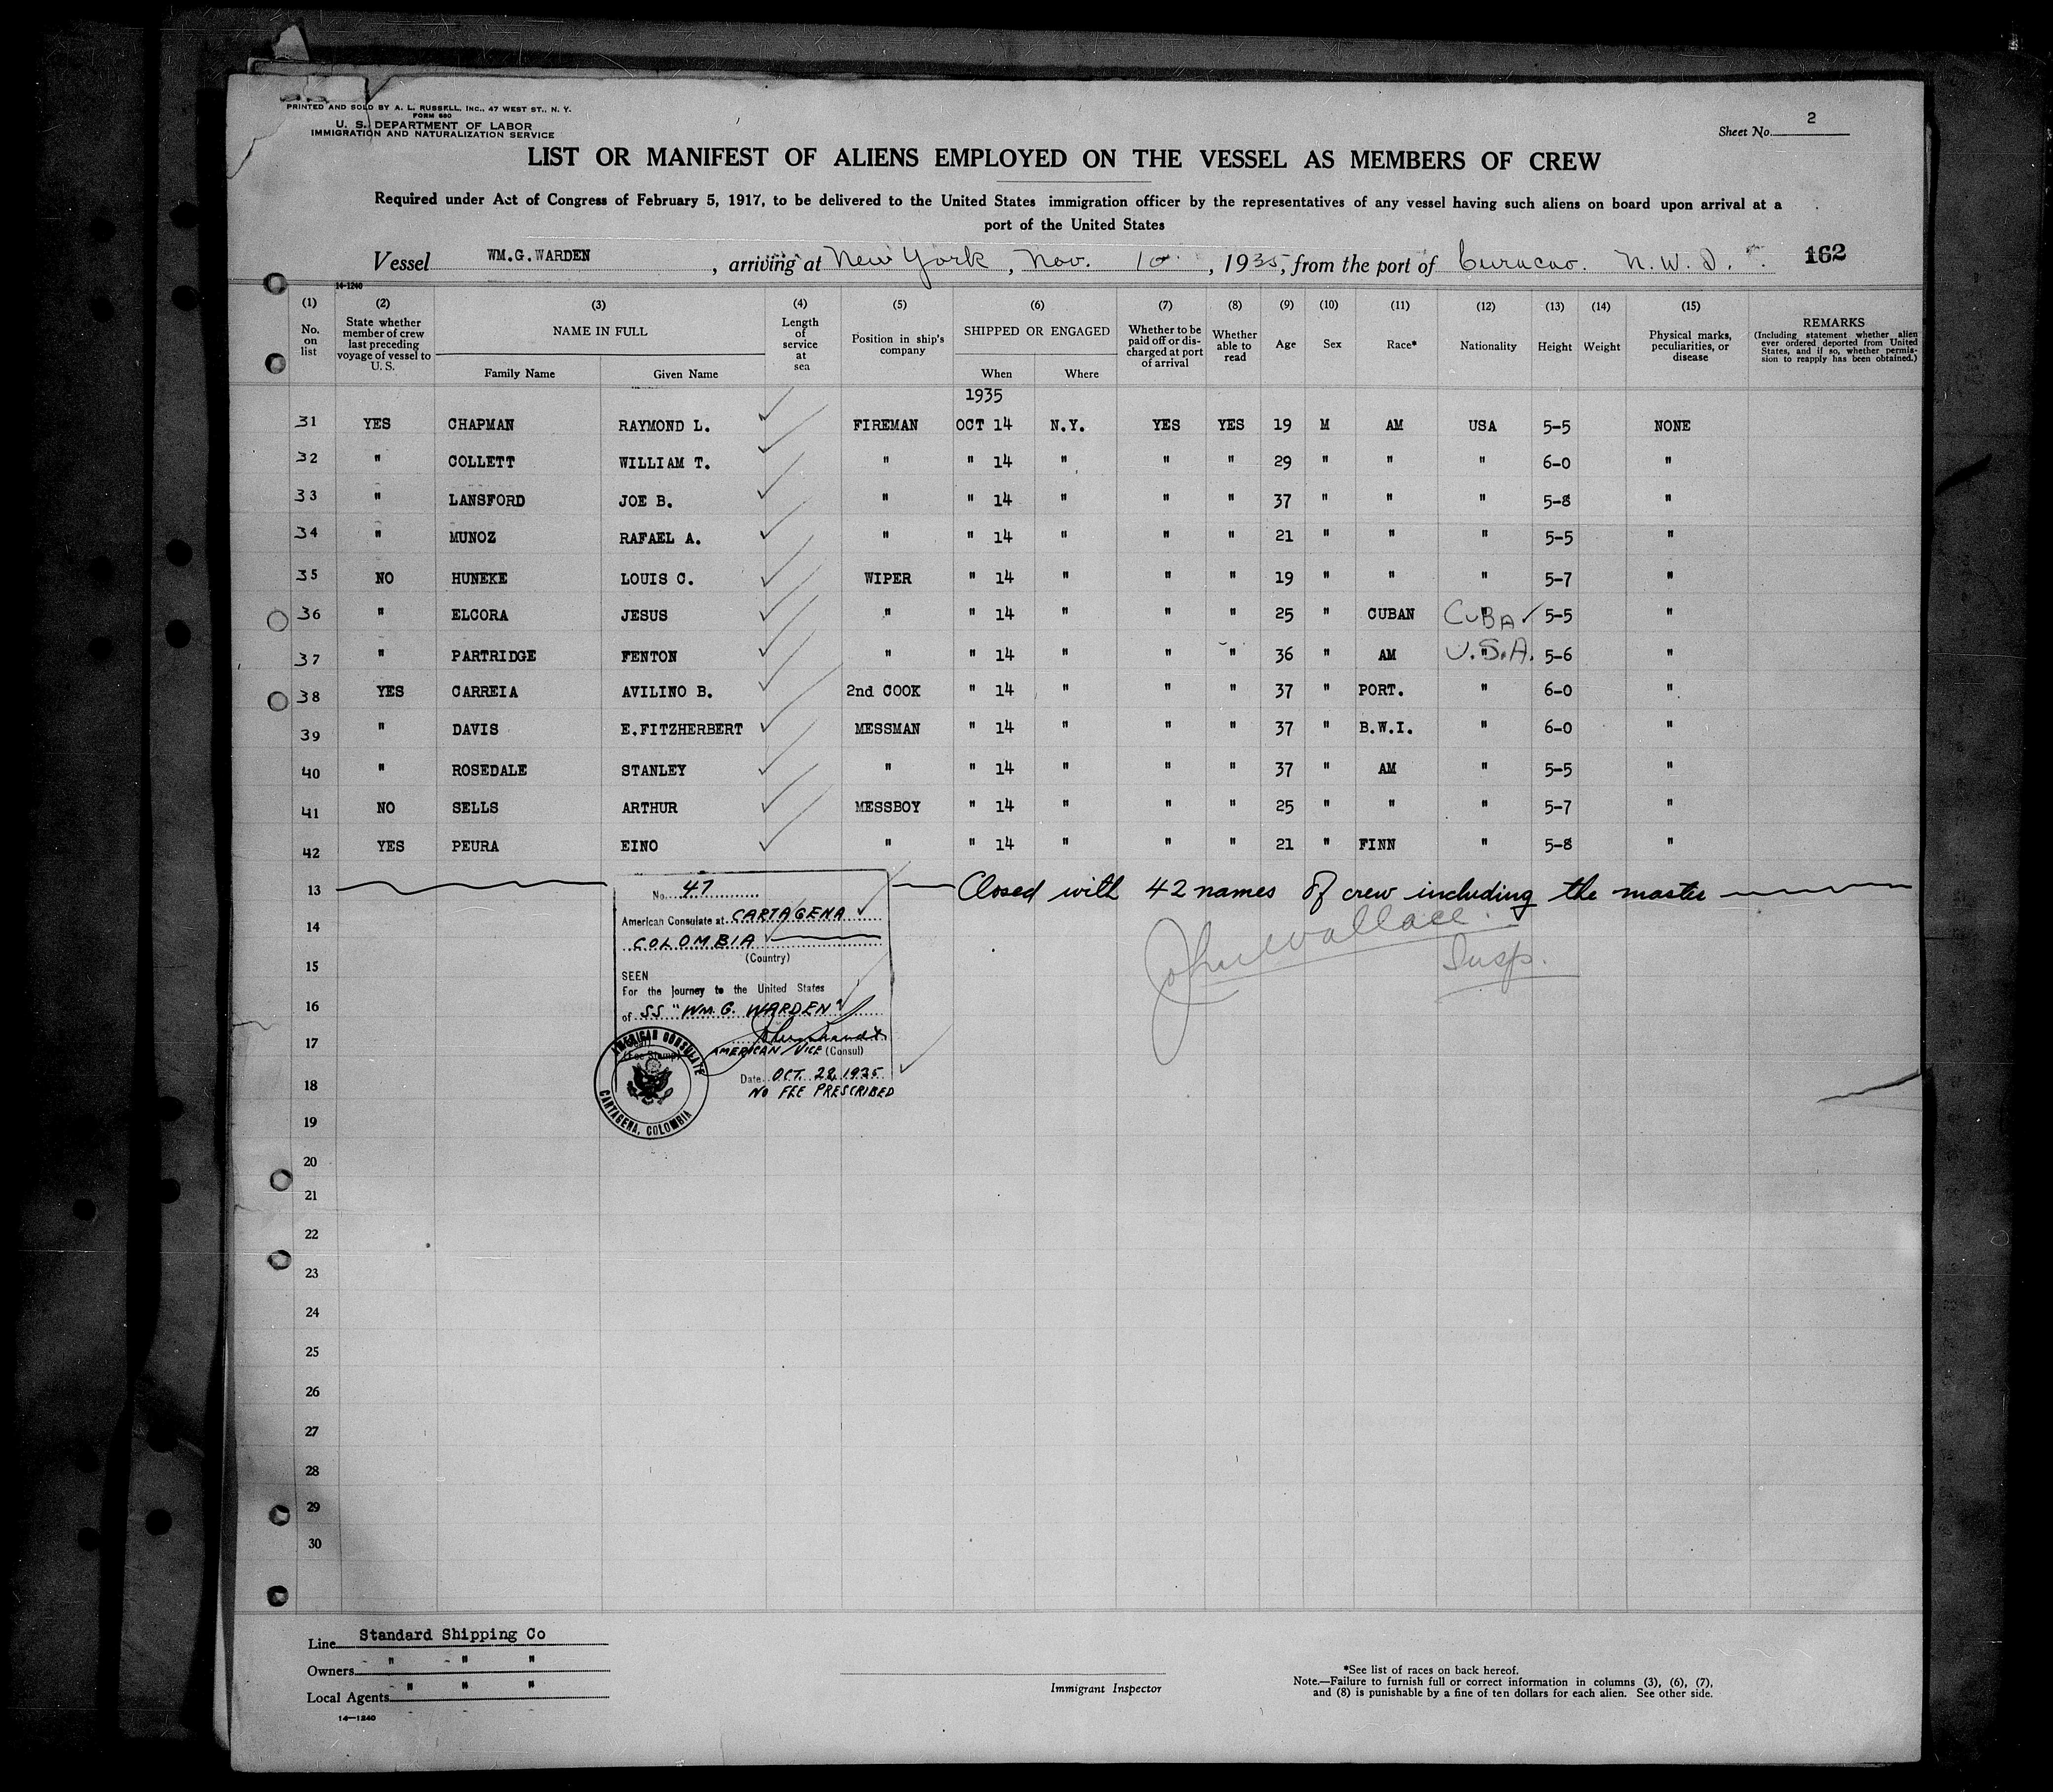 PRINTED AND SOLD BY A. L. RUSSELL, INC., 47 WEST ST., N. Y.
FORM 680
U. S. DEPARTMENT OF LABOR
IMMIGRATION AND NATURALIZATION SERVICE
Sheet No. 2
LIST OR MANIFEST OF ALIENS EMPLOYED ON THE VESSEL AS MEMBERS OF CREW
Required under Act of Congress of February 5, 1917, to be delivered to the United States immigration officer by the representatives of any vessel having such aliens on board upon arrival at a
port of the United States
Vessel WM.G.WARDEN, arriving at New York, Nov. 10, 1935, from the port of Curacao. N.W.I. 162
14-1240
(1) (2) (3) (4) (5) (6) (7) (8) (9) (10) (11) (12) (13) (14) (15)
No. on list
State whether member of crew last preceding voyage of vessel to U. S.
NAME IN FULL
Family Name
Given Name
Length of service at sea
Position in ship's company
SHIPPED OR ENGAGED
When
Where
Whether to be paid off or discharged at port of arrival
Whether able to read
Age
Sex
Race*
Nationality
Height
Weight
Physical marks, peculiarities, or disease
REMARKS
(Including statement whether alien ever ordered deported from United States, and if so, whether permission to reapply has been obtained.)
1935
31 YES CHAPMAN RAYMOND L. FIREMAN OCT 14 N.Y. YES YES 19 M AM USA 5-5 NONE
32 " COLLETT WILLIAM T. " " 14 " " " 29 " " " 6-0 "
33 " LANSFORD JOE B. " " 14 " " " 37 " " " 5-8 "
34 " MUNOZ RAFAEL A. " " 14 " " " 21 " " " 5-5 "
35 NO HUNEKE LOUIS C. WIPER " 14 " " " 19 " " " 5-7 "
36 " ELCORA JESUS " " 14 " " " 25 " CUBAN " CUBA 5-5 "
37 " PARTRIDGE FENTON " " 14 " " " 36 " AM " U.S.A. 5-6 "
38 YES CARREIA AVILINO B. 2nd COOK " 14 " " " 37 " PORT. " 6-0 "
39 " DAVIS E.FITZHERBERT MESSMAN " 14 " " " 37 " B.W.I. " 6-0 "
40 " ROSEDALE STANLEY " " 14 " " " 37 " AM " 5-5 "
41 NO SELLS ARTHUR MESSBOY " 14 " " " 25 " " " 5-7 "
42 YES PEURA EINO " " 14 " " " 21 " FINN " 5-8 "
13 Closed with 42 names of crew including the master
No. 47
American Consulate at CARTAGENA
COLOMBIA
(Country)
SEEN
For the Journey to the United States
of SS "WM. G. WARDEN"
AMERICAN VICE (Consul)
(Fee Stamp)
Date OCT. 22, 1935
NO FEE PRESCRIBED
AMERICAN CONSULATE
CARTAGENA, COLOMBIA
John Wallace
Insp.
14
15
16
17
18
19
20
21
22
23
24
25
26
27
28
29
30
Line Standard Shipping Co
Owners " " "
Local Agents " " "
14—1240
Immigrant Inspector
*See list of races on back hereof.
Note.—Failure to furnish full or correct information in columns (3), (6), (7),
and (8) is punishable by a fine of ten dollars for each alien. See other side.